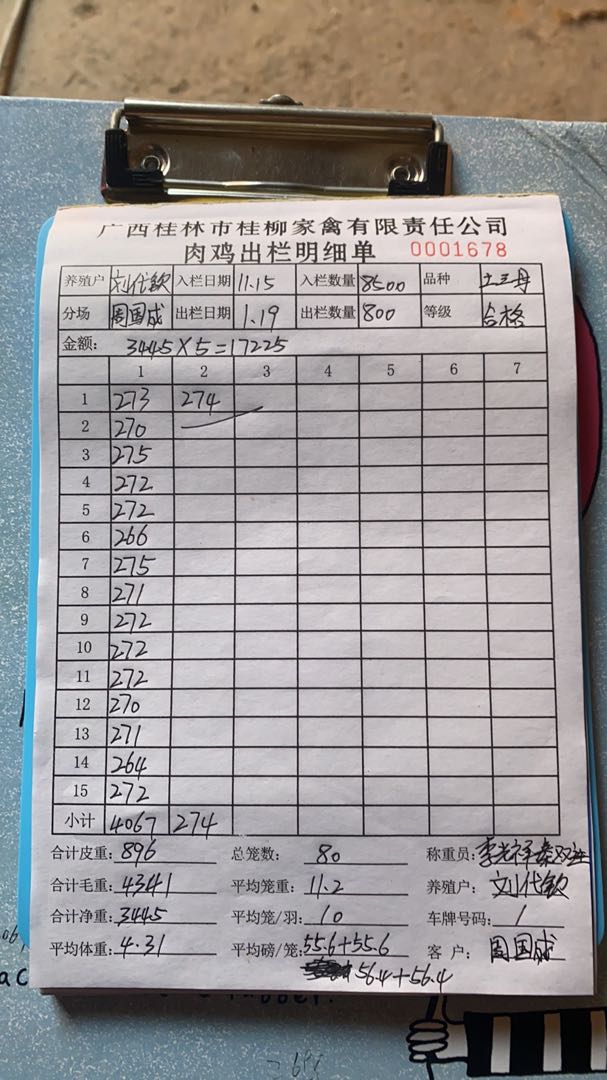 广西桂林市桂柳家禽有限责任公司
肉鸡出栏明细单 0001678
养殖户 刘代钦 入栏日期 11.15 入栏数量 8500 品种 土三丹
分场 周国成 出栏日期 1.19 出栏数量 800 等级 合格
金额: 3445×5=17225
1 2 3 4 5 6 7
1 273 274
2 270
3 275
4 272
5 272
6 266
7 275
8 271
9 272
10 272
11 272
12 270
13 271
14 264
15 272
小计 4067 274
合计皮重: 896 总笼数: 80 称重员: 李光祥 秦双
合计毛重: 4341 平均笼重: 11.2 养殖户: 刘代钦
合计净重: 3445 平均笼/羽: 10 车牌号码: 1
平均体重: 4.31 平均磅/笼: 55.6+55.6 客户: 周国成
56.4+56.4